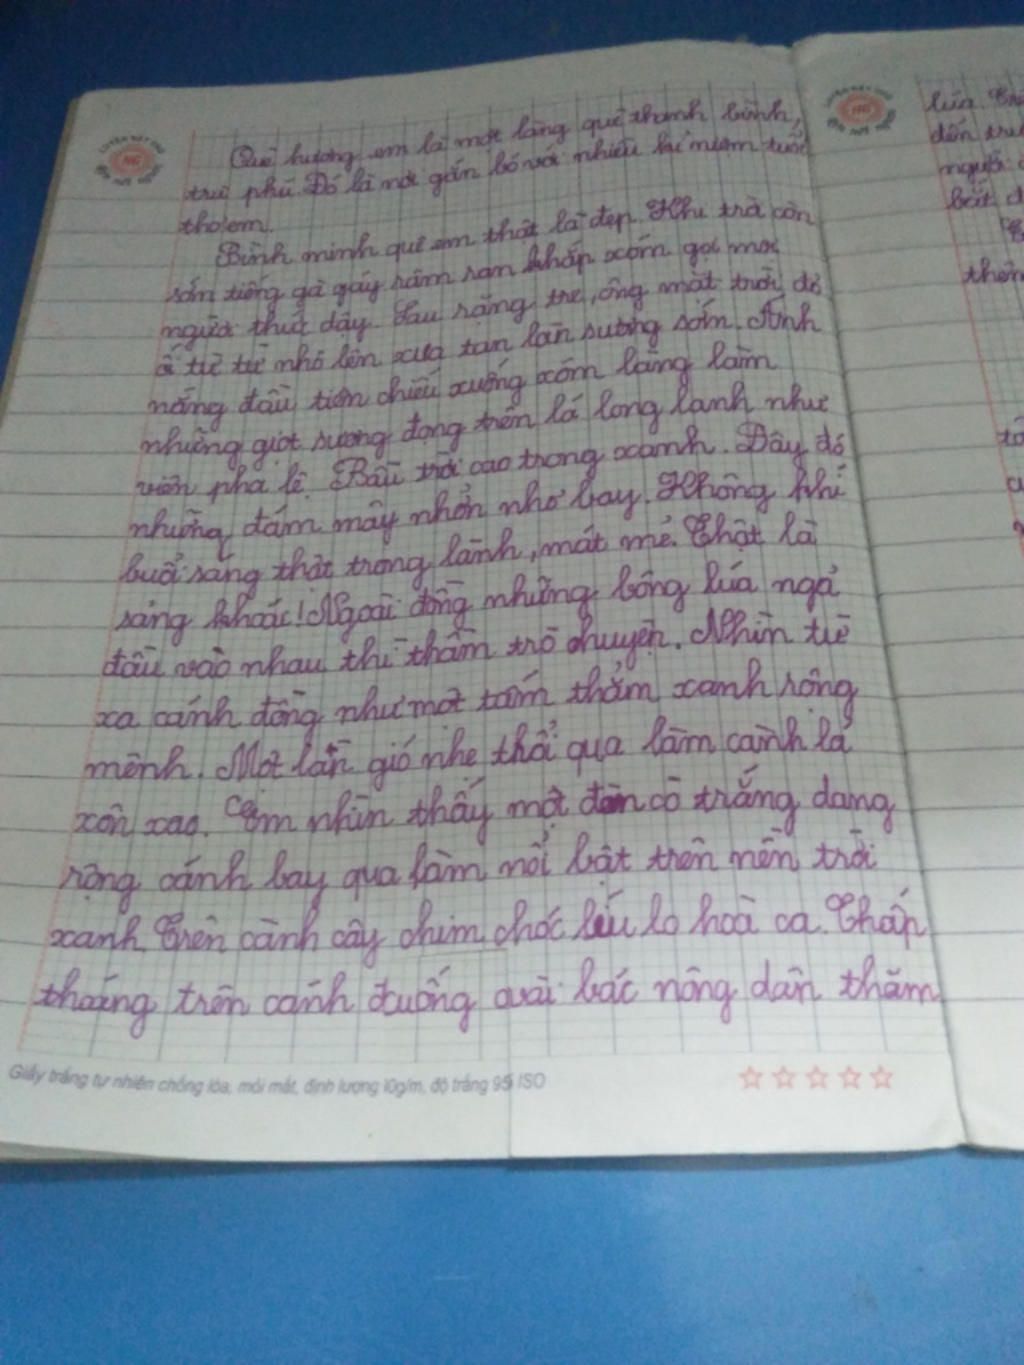 Quê hương em là một làng quê thanh bình,
trù phú. Đó là nơi gắn bó với nhiều kỉ niệm tuổi
thơ em.
Bình minh quê em thật là đẹp. Khi trời còn
sớm tiếng gà gáy râm ran khắp xóm gọi mọi
người thức dậy. Sau rặng tre, ông mặt trời đỏ
ối từ từ nhô lên xua tan làn sương sớm. Ánh
nắng đầu tiên chiếu xuống xóm làng làm
những giọt sương đọng trên lá long lanh như
viên pha lê. Bầu trời cao trong xanh. Đây đó
những đám mây nhởn nhơ bay. Không khí
buổi sáng thật trong lành, mát mẻ. Thật là
sảng khoái! Ngoài đồng những bông lúa ngả
đầu vào nhau thì thầm trò chuyện. Nhìn từ
xa cánh đồng như một tấm thảm xanh rộng
mênh. Một làn gió nhẹ thổi qua làm cành lá
xôn xao. Em nhìn thấy một đàn cò trắng dang
rộng cánh bay qua làm nổi bật trên nền trời
xanh. Trên cành cây chim chóc líu lo hoà ca. Thấp
thoáng trên cánh đuồng vài bác nông dân thăm
Giấy trắng tự nhiên chống lóa, mỏi mắt, định lượng g/m, độ trắng 95% ISO
lúa.
đến
người
bắt đ